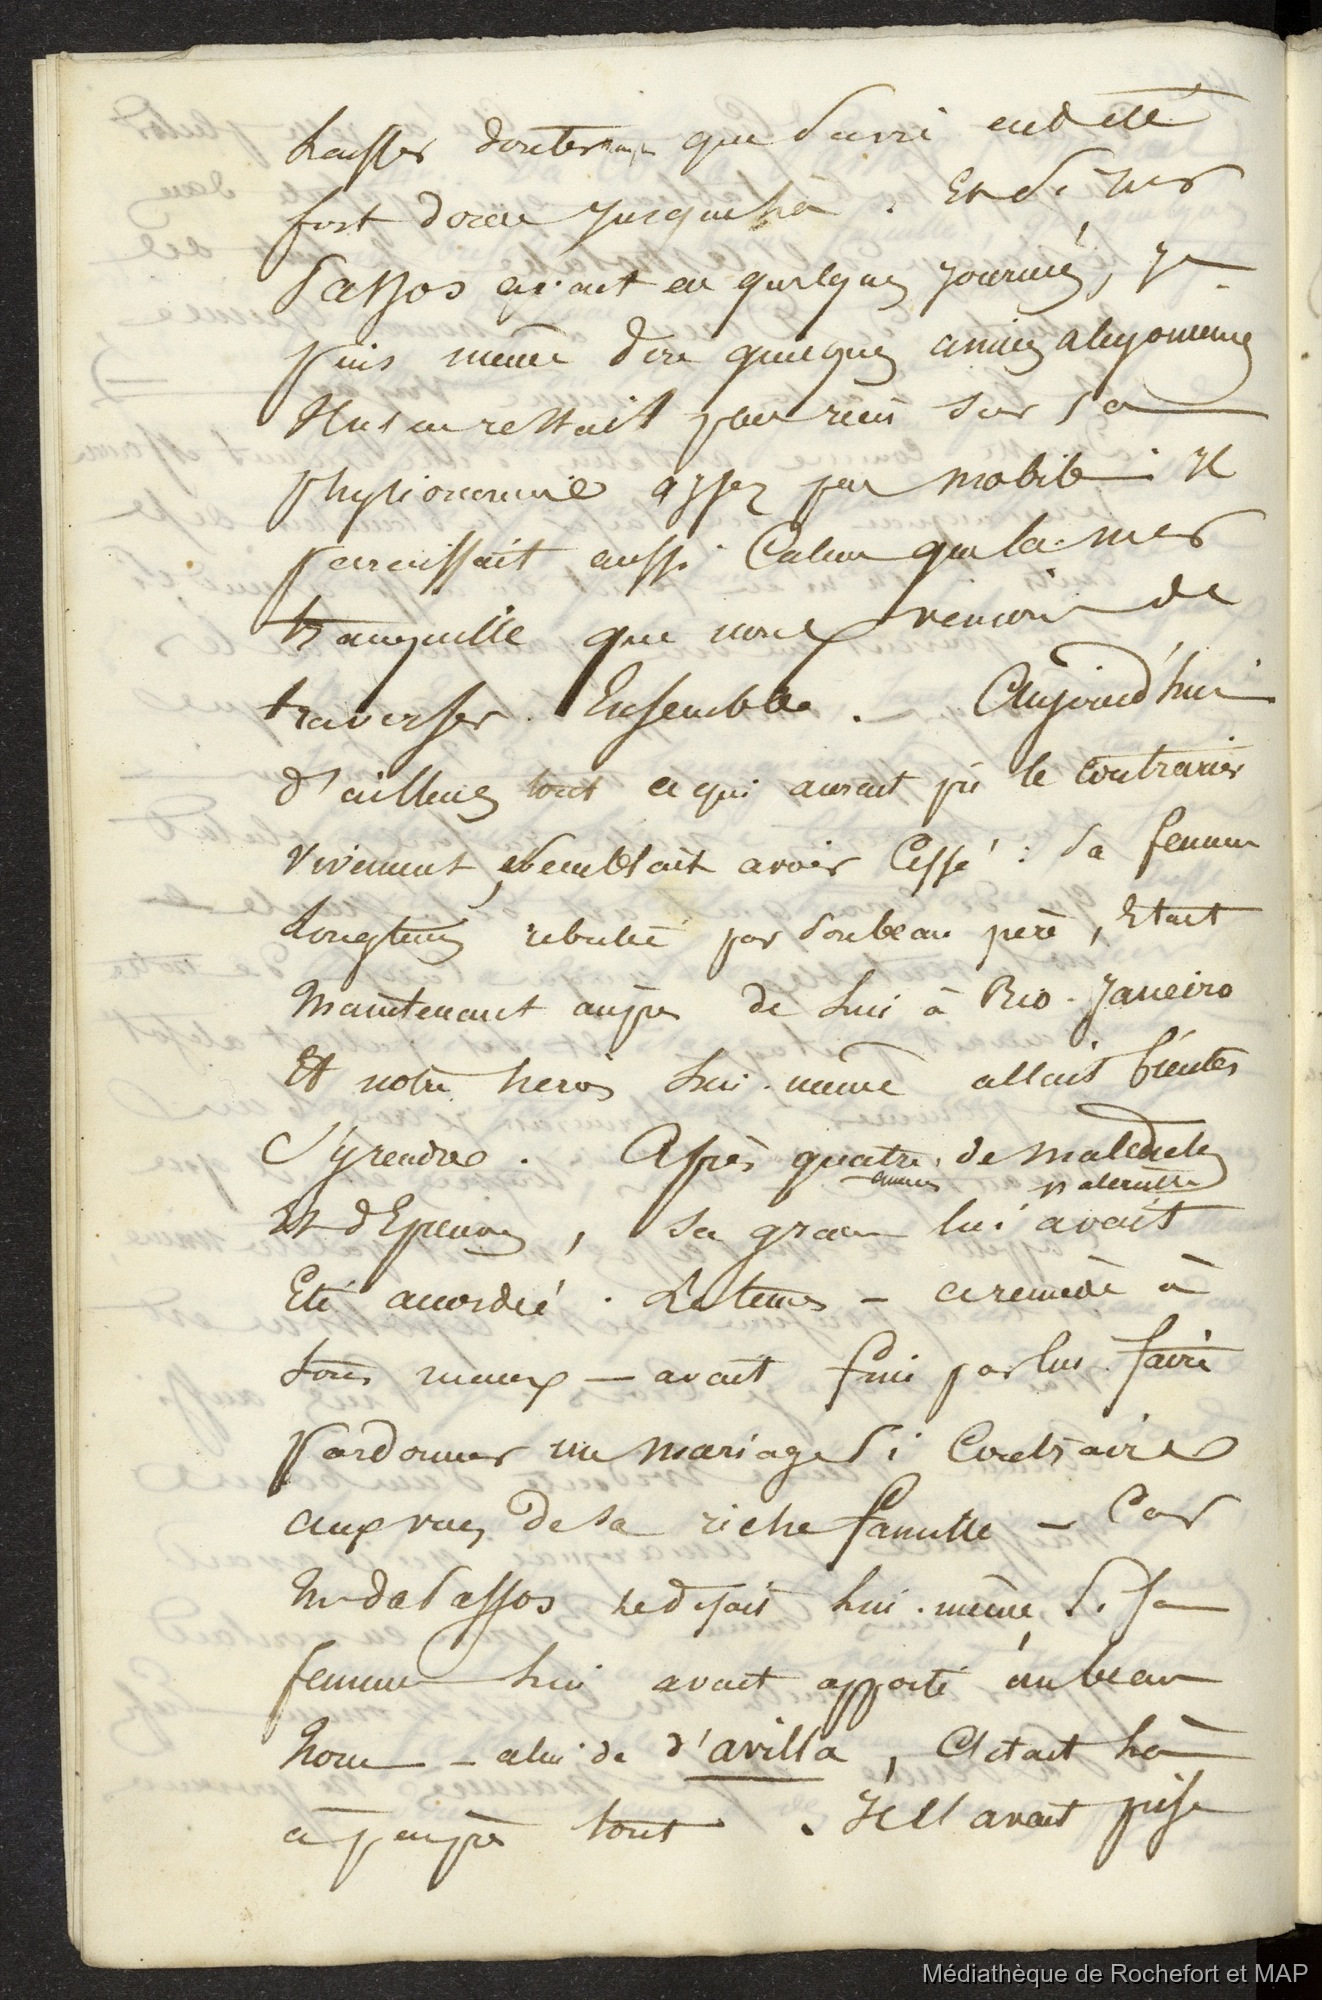 laisser douter que sa vie eut été
fort douce jusque là. Et si Mr
Passos avait eu quelques journées, je
puis même dire quelques années aleyonienne
Il n'en restait plus rien sur sa
physionomie assez peu mobile. Il
paraissait aussi Calme que la mer
tranquille que nous venions de
traverser Ensemble. - Aujourd'hui
d'ailleurs tout ce qui aurait pû le contrarier
vivement, semblait avoir Cessé : Sa femme
longtems rebutée par son beau père, Etait
Maintenant auprès de lui à Rio-Janeiro
Et notre heros lui-même allait bientôt
S'y rendre. Après quatre années de malédictions paternelles
Et d'Epreuves, sa grace lui avait
Eté accordée. Le tems - ce remède à
tous maux - avait fini par lui faire
pardonner un mariage Si Contraire
aux vues de sa riche famille - Car
Mr de Passos le disait lui-même, Si sa
femme lui avait apporté un beau
Nom - celui de d'avilla, C'etait là
à peu près tout. Il l'avait prise
Médiathèque de Rochefort et MAP